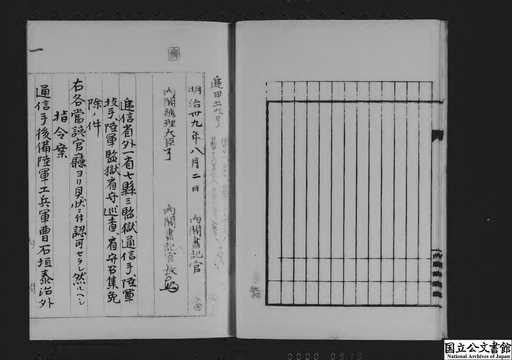 逓甲五九号
明治卅九年八月二日 内閣書記官
内閣総理大臣 内閣書記官長
逓信省外一省七縣三監獄通信手、陸軍
技手、陸軍監獄看守、巡査、看守召集免
除ノ件
右各當該官廳ヨリ具状ニ付認可セラレ然ルヘシ
指令案
通信手後備陸軍工兵軍曹石垣泰治外
一
国立公文書館
National Archives of Japan